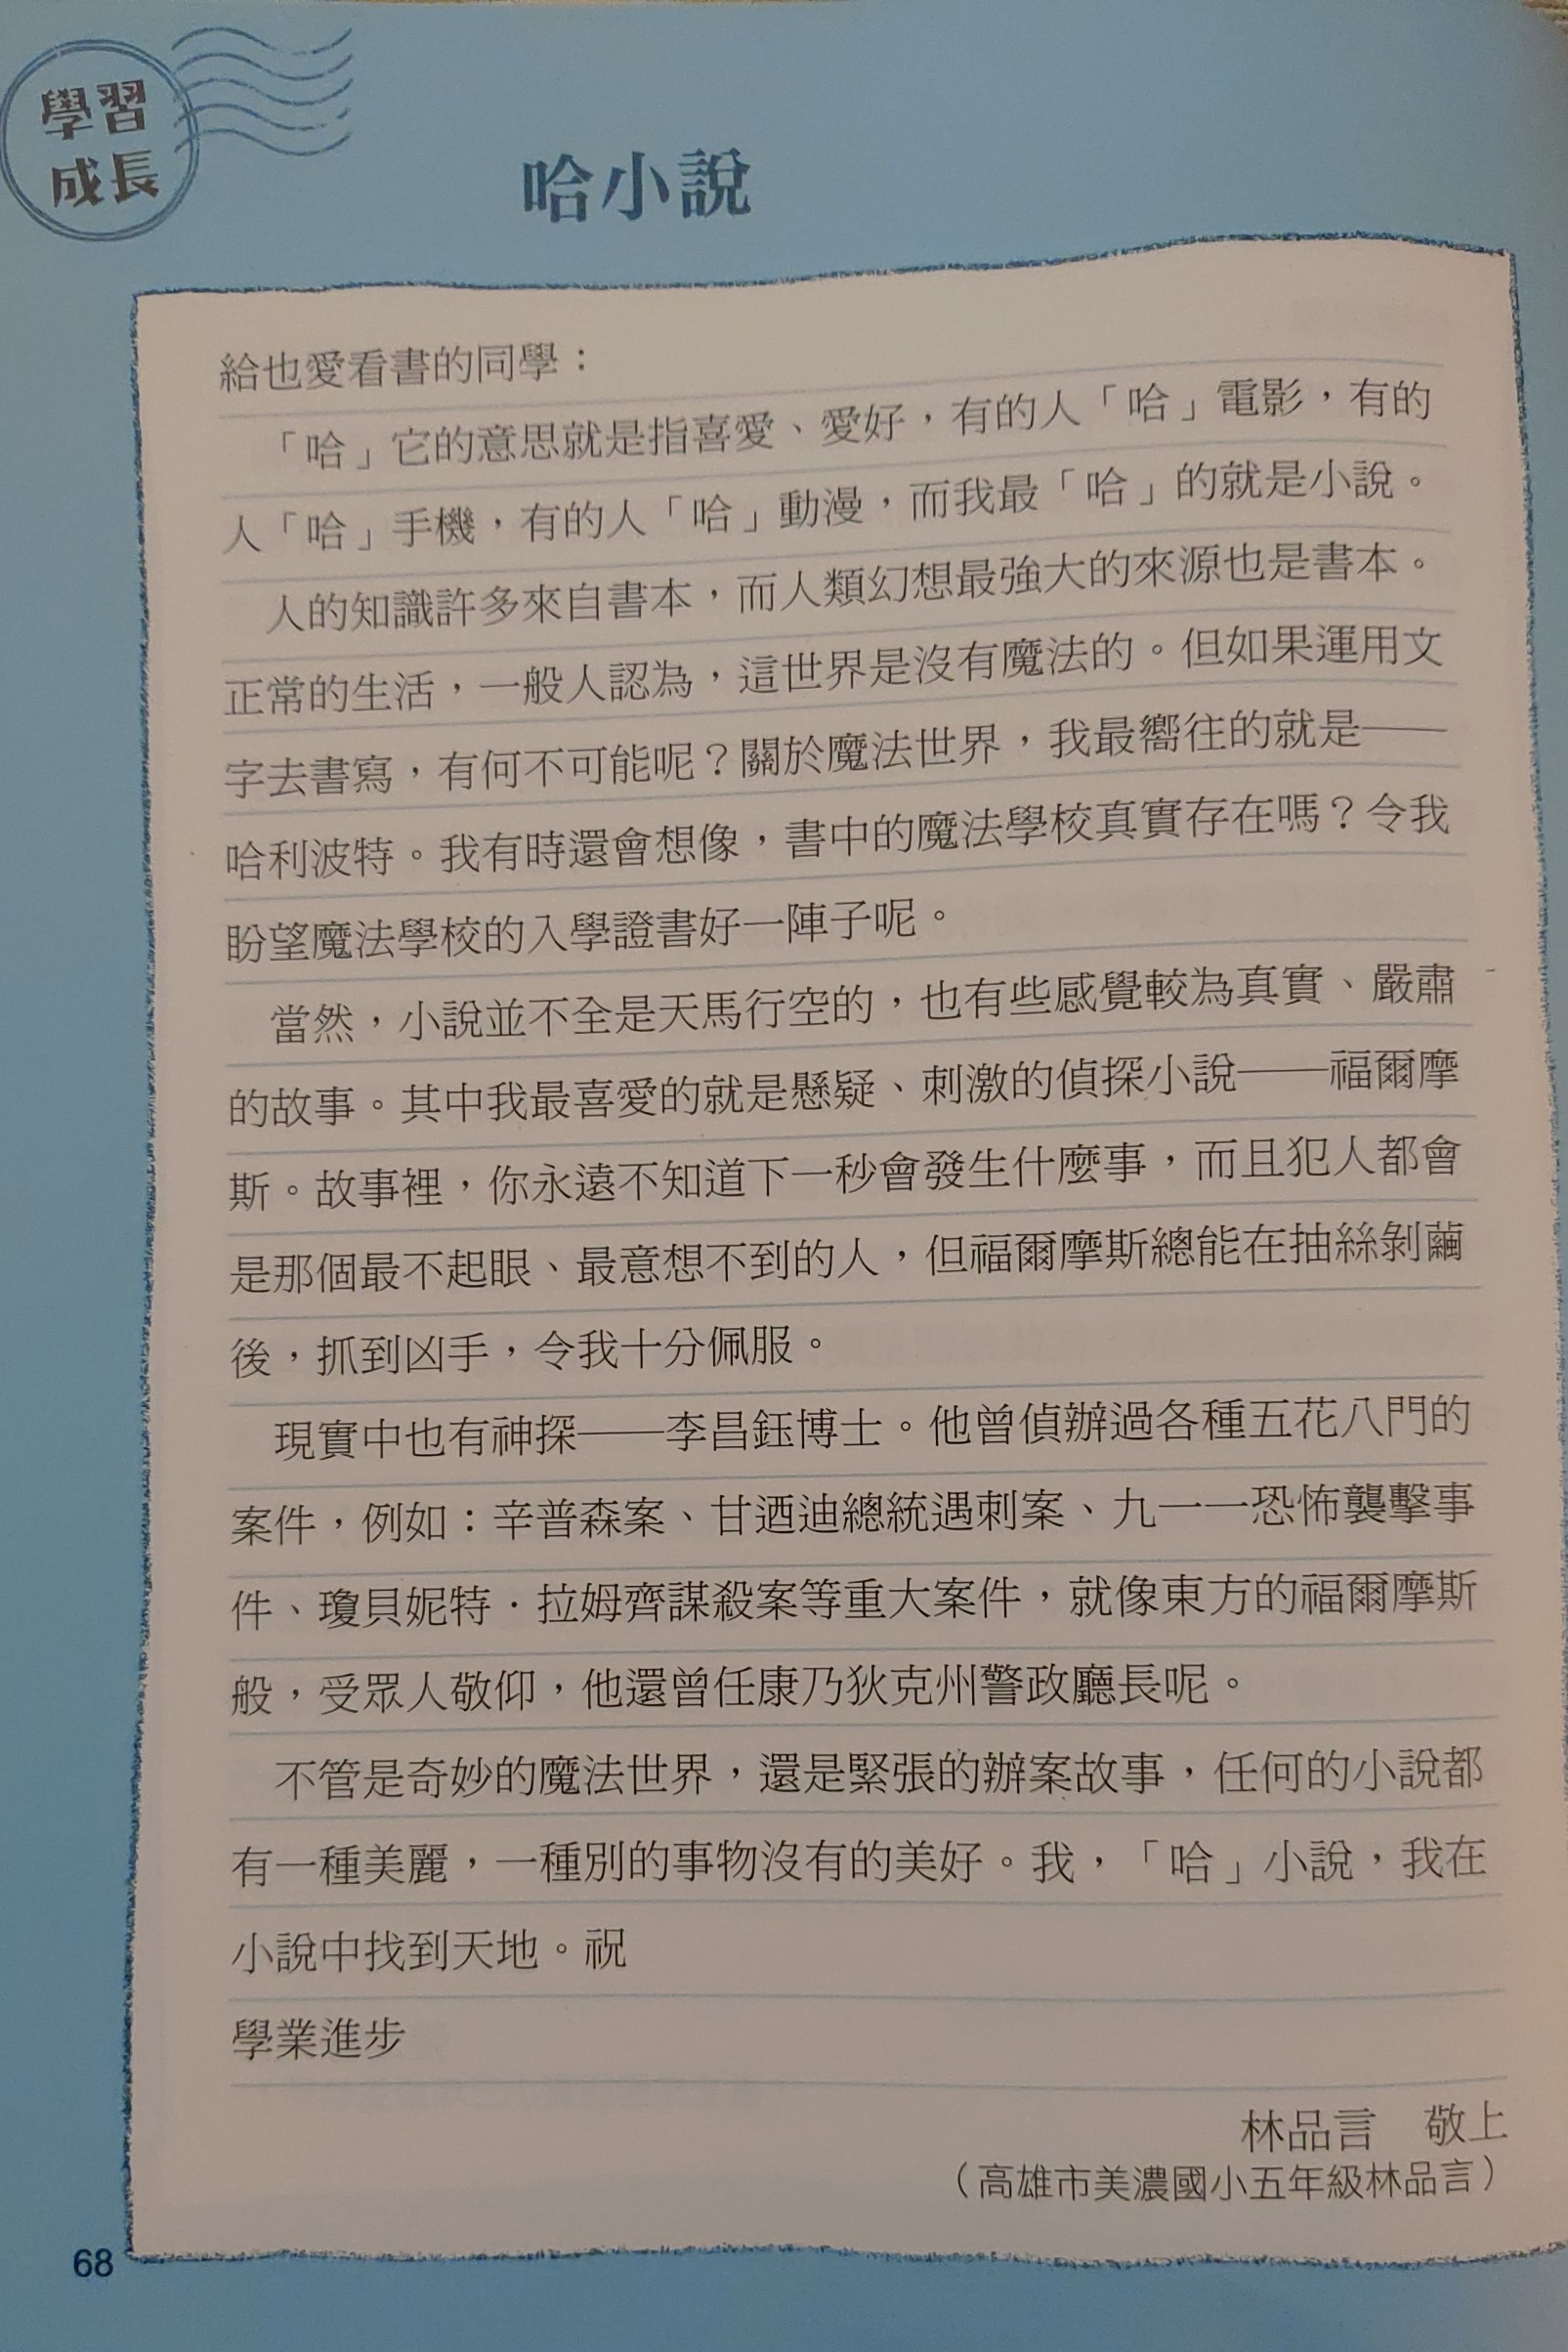 學習
成長
哈小說
給也愛看書的同學：
「哈」它的意思就是指喜愛、愛好，有的人「哈」電影，有的
人「哈」手機，有的人「哈」動漫，而我最「哈」的就是小說。
人的知識許多來自書本，而人類幻想最強大的來源也是書本。
正常的生活，一般人認為，這世界是沒有魔法的。但如果運用文
字去書寫，有何不可能呢？關於魔法世界，我最嚮往的就是——
哈利波特。我有時還會想像，書中的魔法學校真實存在嗎？令我
盼望魔法學校的入學證書好一陣子呢。
當然，小說並不全是天馬行空的，也有些感覺較為真實、嚴肅
的故事。其中我最喜愛的就是懸疑、刺激的偵探小說——福爾摩
斯。故事裡，你永遠不知道下一秒會發生什麼事，而且犯人都會
是那個最不起眼、最意想不到的人，但福爾摩斯總能在抽絲剝繭
後，抓到凶手，令我十分佩服。
現實中也有神探——李昌鈺博士。他曾偵辦過各種五花八門的
案件，例如：辛普森案、甘迺迪總統遇刺案、九一一恐怖襲擊事
件、瓊貝妮特．拉姆齊謀殺案等重大案件，就像東方的福爾摩斯
般，受眾人敬仰，他還曾任康乃狄克州警政廳長呢。
不管是奇妙的魔法世界，還是緊張的辦案故事，任何的小說都
有一種美麗，一種別的事物沒有的美好。我，「哈」小說，我在
小說中找到天地。祝
學業進步
林品言　敬上
（高雄市美濃國小五年級林品言）
68